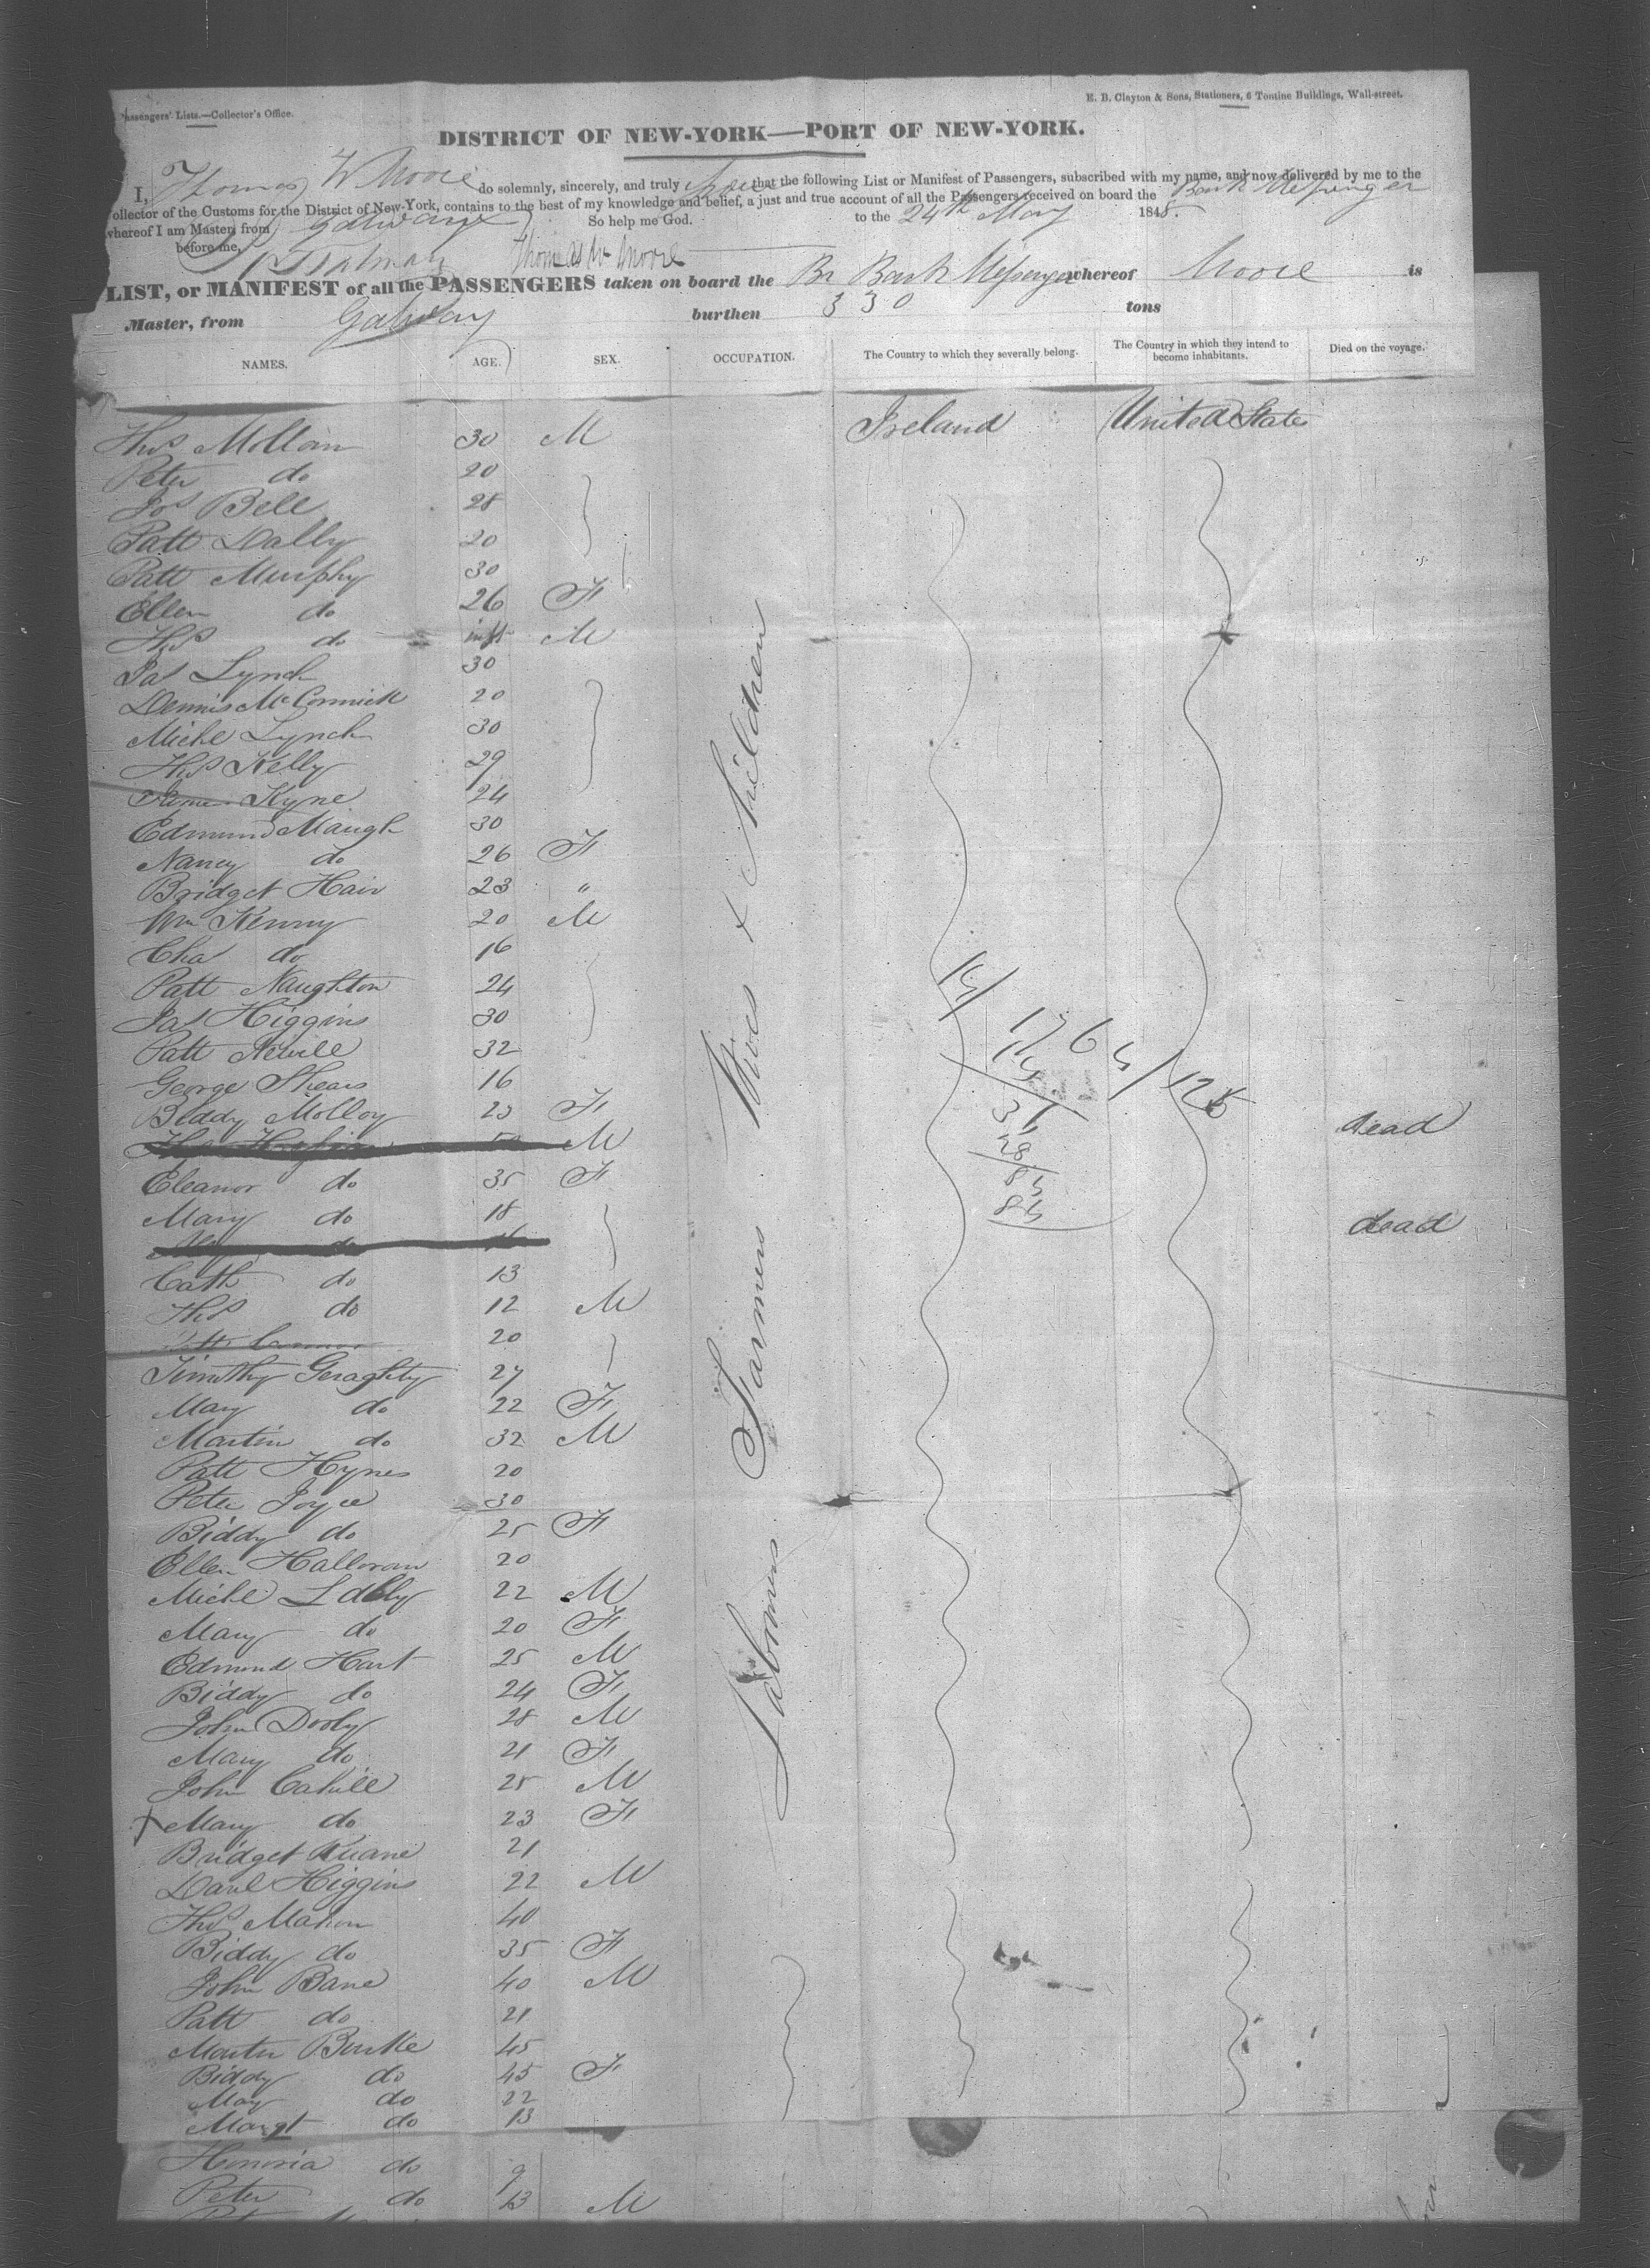 Passengers' Lists.—Collector's Office.
E. B. Clayton & Sons, Stationers, 6 Tontine Buildings, Wall-street.
DISTRICT OF NEW-YORK—PORT OF NEW-YORK.
I, Thomas W Moore do solemnly, sincerely, and truly that the following List or Manifest of Passengers, subscribed with my name, and now delivered by me to the
ollector of the Customs for the District of New-York, contains to the best of my knowledge and belief, a just and true account of all the Passengers received on board the Bark Messenger
whereof I am Master, from Galway to the 24th May 1848.
So help me God.
before me, Thomas W Moore
LIST, or MANIFEST of all the PASSENGERS taken on board the Br Bark Messenger whereof Moore is
Master, from Galway burthen 330 tons
NAMES. AGE. SEX. OCCUPATION. The Country to which they severally belong. The Country in which they intend to become inhabitants. Died on the voyage.
Thos Mollan 30 M Ireland United States
Peter do 20
Jos Bell 28
Patt Dally 20
Patt Murphy 30
Ellen do 26 F
Thos do inft M
Jas Lynch 30
Dennis McCormick 20
Michl Lynch 30
Thos Kelly 29
Kyne 24
Edmund Maugh 30
Nancy do 26 F
Bridget Hair 23 "
Wm Kenny 20 M
Cha do 16
Patt Naughton 24
Jas Higgins 30
Patt Nevill 32
George Shears 16
Biddy Molloy 23 F
M dead
Eleanor do 35 F
Mary do 18
do dead
Cath do 13
Thos do 12 M
20
Timothy Geraghty 27
Mary do 22 F
Martin do 32 M
Patt Hynes 20
Peter Joyce 30
Biddy do 25 F
Ellen Halloran 20
Michl Lally 22 M
Mary do 20 F
Edmond Hart 25 M
Biddy do 24 F
John Dooly 28 M
Mary do 21 F
John Cahill 25 M
X Mary do 23 F
Bridget Ruane 21
Danl Higgins 22 M
Thos Mahon 40
Biddy do 35 F
John Bane 40 M
Patt do 21
Martin Burke 45
Biddy do 45 F
Mary do 22
Margt do 13
Honoria do 9
Peter do 13 M
Labourers Farmers Wives & Children